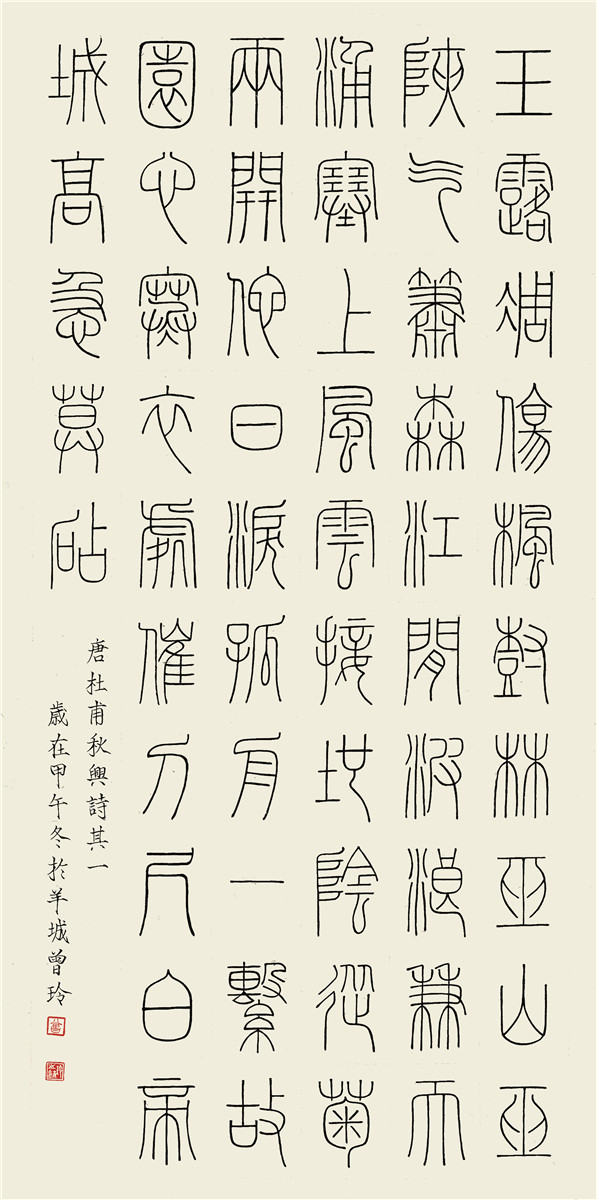 玉露凋傷楓尌林巫山巫
陜气蕭森江閒波浪兼天
涌塞上風雲接地陰從菊
兩開佗日淚孤舟一繫故
園心寒衣處催刀尺白帝
城高急莫砧
唐杜甫秋興詩其一
歲在甲午冬於羊城曾玲